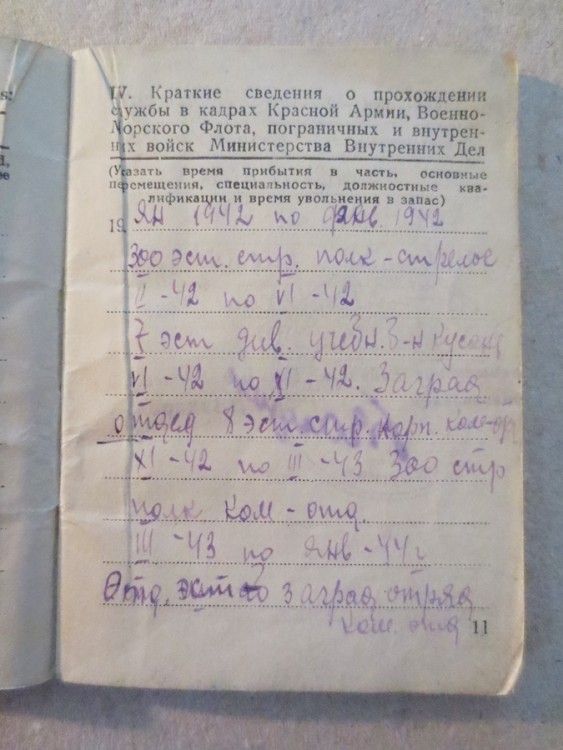 IV. Краткие сведения о прохождении
службы в кадрах Красной Армии, Военно-
Морского Флота, пограничных и внутрен-
них войск Министерства Внутренних Дел
(Указать время прибытия в часть, основные
перемещения, специальность, должностные ква-
лификации и время увольнения в запас)
19 ЯН 1942 по 1942
300 эст. стр. полк - стрелок
II - 42 по VI - 42
7 эст див. учебн. б-н курсант
VI - 42 по XI - 42. Заград
отряд 8 эст стр. корп. ком-от
XI - 42 по III - 43 300 стр
полк ком - отд.
III - 43 по Янв - 44 г
Отд. заград отряд
ком. отд 11